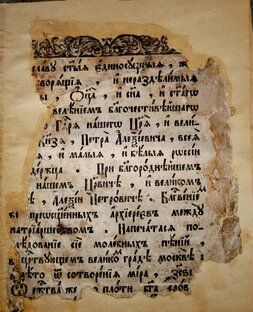 славу ст҃ыѧ єдиносущныѧ , ж
творѧщиѧ , и нераздѣлимыѧ
ы , Ѻц҃а , и сн҃а , и ст҃агѡ
велѣнїемъ бл҃гочестивѣйшагѡ
Гдрѧ нашегѡ Цр҃ѧ , и вели
кн҃зѧ , Петра Алеѯїевича , всеѧ
и малыѧ , и бѣлыѧ рѡссїи
держца . При бл҃городнѣйшемъ
нашемъ Цр҃вичѣ , и великомъ
ѣ , Алеѯїи Петровичѣ . Бл҃гвенїе
же преѡсщ҃енныхъ Архїереѡвъ между
патрїаршествомъ . Напечатасѧ по
лѣдованїе сїе молебныхъ пѣнїй ,
в цр҃твующемъ великомъ градѣ москвѣ :
лѣто ѿ сотворенїѧ мїра ,
Рж҃тва же , плоти бг҃а слов